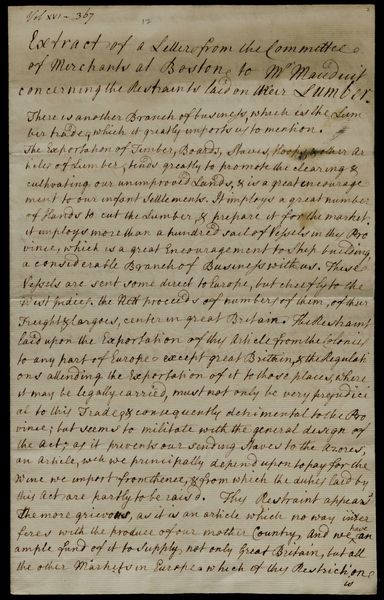 Vol XVI - 367
12
Extract of a Letter from the Committee
of Merchants at Boston to Mr Mauduit
concerning the Restraints laid on their Lumber.
There is another Branch of business, which is the Lum
ber trade, which it greatly imports us to mention.
The Exportation of Timber, Boards, Staves, Hoops & other Ar
ticles of Lumber, tends greatly to promote the clearing &
cultivating our unimproved Lands, & is a great encourage
ment to our infant Settlements. It imploys a great number
of Hands to cut the Lumber, & prepare it for the market;
it imploys more than a hundred sail of Vessels in this Pro
vince, which is a great Encouragement to Ship building,
a considerable Branch of Business with us. These
Vessels are sent some direct to Europe, but chiefly to the
West Indies. the Nett proceeds of numbers of them, of their
Freight & Cargoes, center in great Britain. The Restraint
laid upon the Exportation of this Article from the Colonies
to any part of Europe except great Britain, & the Regulati
ons attending the Exportation of it to those places, where
it may be legally carried, must not only be very prejudice
al to this Trade, & consequently detrimental to the Pro
vince; but seems to militate with the general design of
the Act; as it prevents our sending Staves to the Azores,
an Article, wch we principally depend upon to pay for the
Wine we import from thence, & from which the duties laid by
this Act are partly to be raisd. This Restraint appears
the more grievous, as it is an article which no way inter
feres with the produce of our mother Country, and we have an
ample fund of it to supply, not only Great Britain, but all
the other Markets in Europe which of this Restriction
is